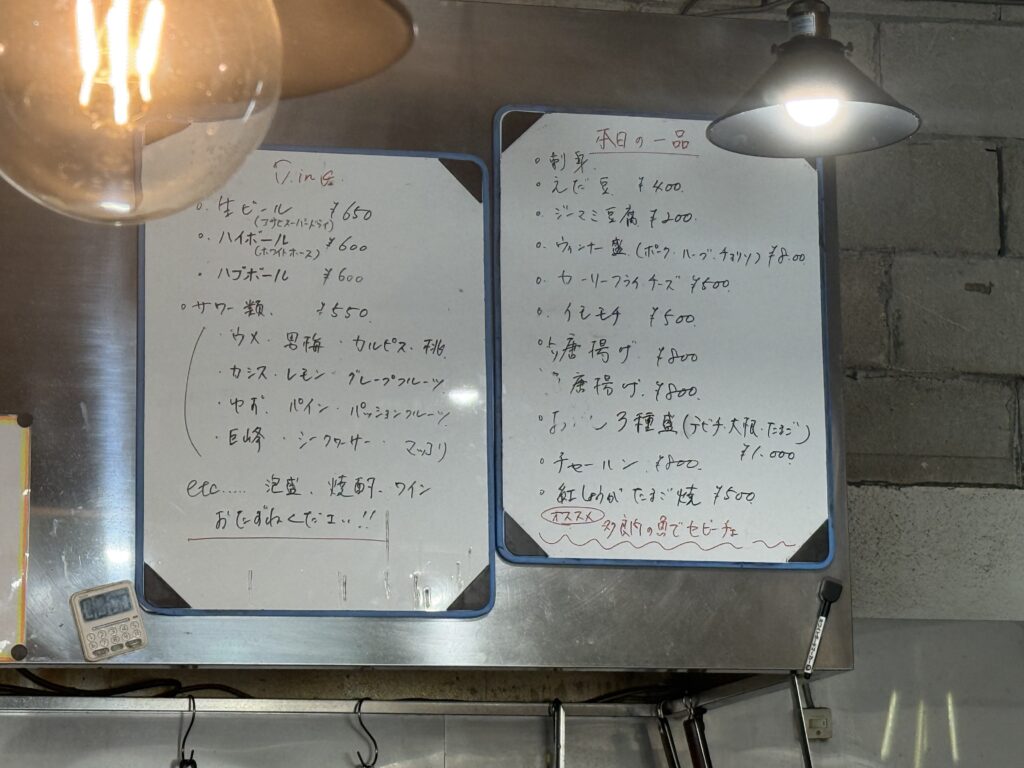 生ビール ¥650
(アサヒスーパードライ)
ハイボール ¥600
(ホワイトホース)
ハブボール ¥600
サワー類 ¥550
・ウメ・男梅・カルピス・桃
・カシス・レモン・グレープフルーツ
・ゆず・パイン・パッションフルーツ
・巨峰・シークワーサー・マッコリ
etc..... 泡盛、焼酎、ワイン
おたずねください!!
本日の一品
刺身
えだ豆 ¥400
ジーマミ豆腐 ¥200
ウィンナー盛(ポーク・ハーブ・チョリソ) ¥800
カーリーフライ・チーズ ¥500
イモモチ ¥500
唐揚げ ¥800
唐揚げ ¥800
3種盛(テビチ・大根・たまご)
¥1.000
¥800
紅しょうがたまご焼 ¥500
オススメ
の魚でセビーチェ